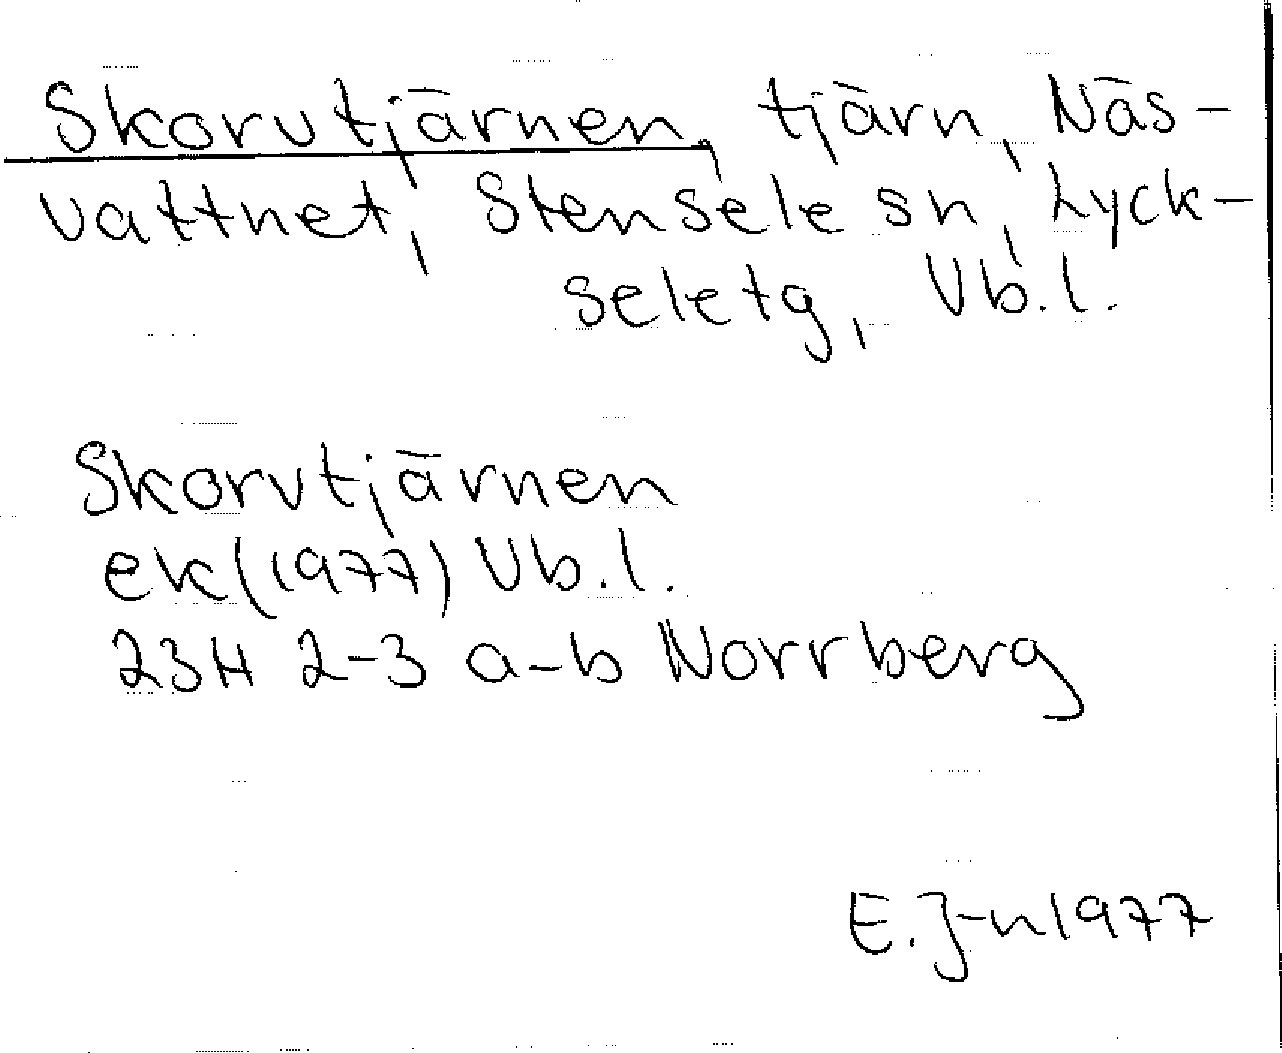 Skorvtjärnen, tjärn, Näs-
vattnet, Stensele sn, Lyck-
seletg, Vb.l.
Skorvtjärnen
ek(1977) Vb.l.
23H 2-3 a-b Norrberg
E.J-n 1977